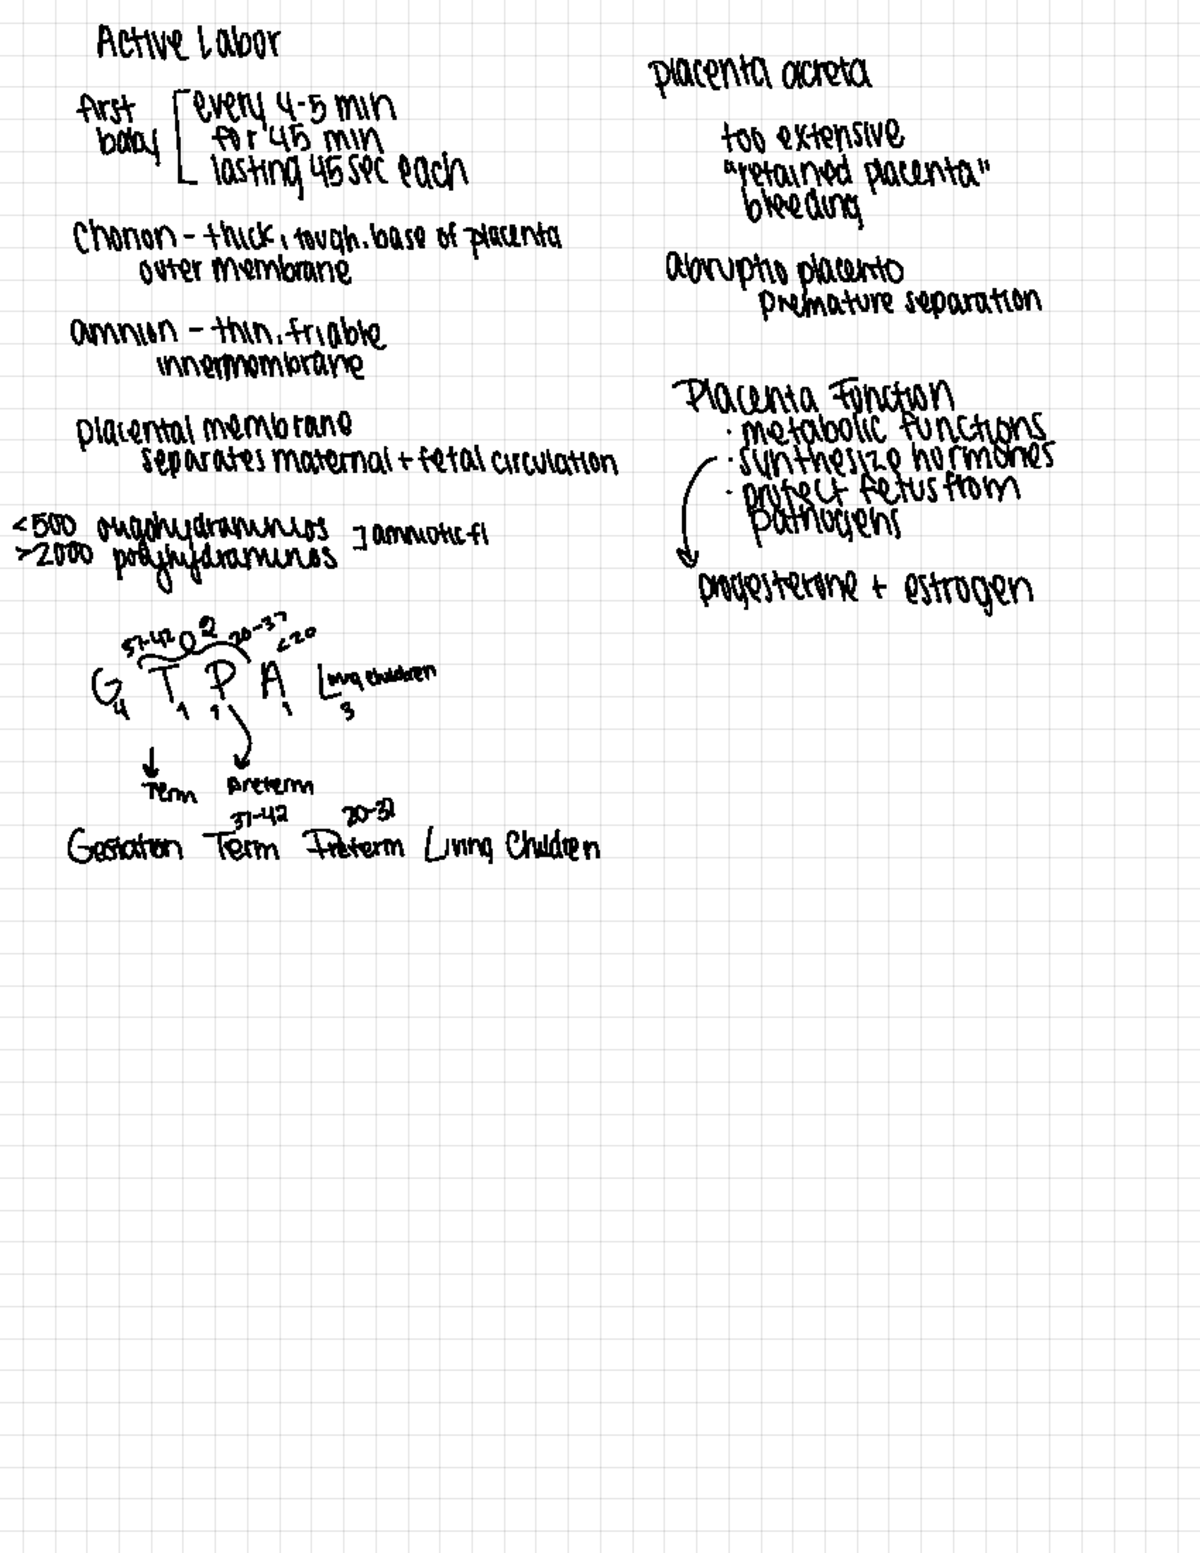 Active Labor
first baby
every 4-5 min
for 45 min
lasting 45 sec each
Chorion - thick, tough. base of placenta
outer membrane
amnion - thin, friable
innermembrane
placental membrane
separates maternal + fetal circulation
<500 oligohydraminios
>2000 polyhydraminos
] amniotic fl
37-42 2 20-37 <20
G T P A Living Children
4 1 1 1 3
Term Preterm
37-42
Gestation Term Preterm Living Children
placenta acreta
too extensive
"retained placenta"
bleeding
abruptio placento
premature separation
Placenta Function
· metabolic functions
· synthesize hormones
· protect fetus from
pathogens
progesterone + estrogen